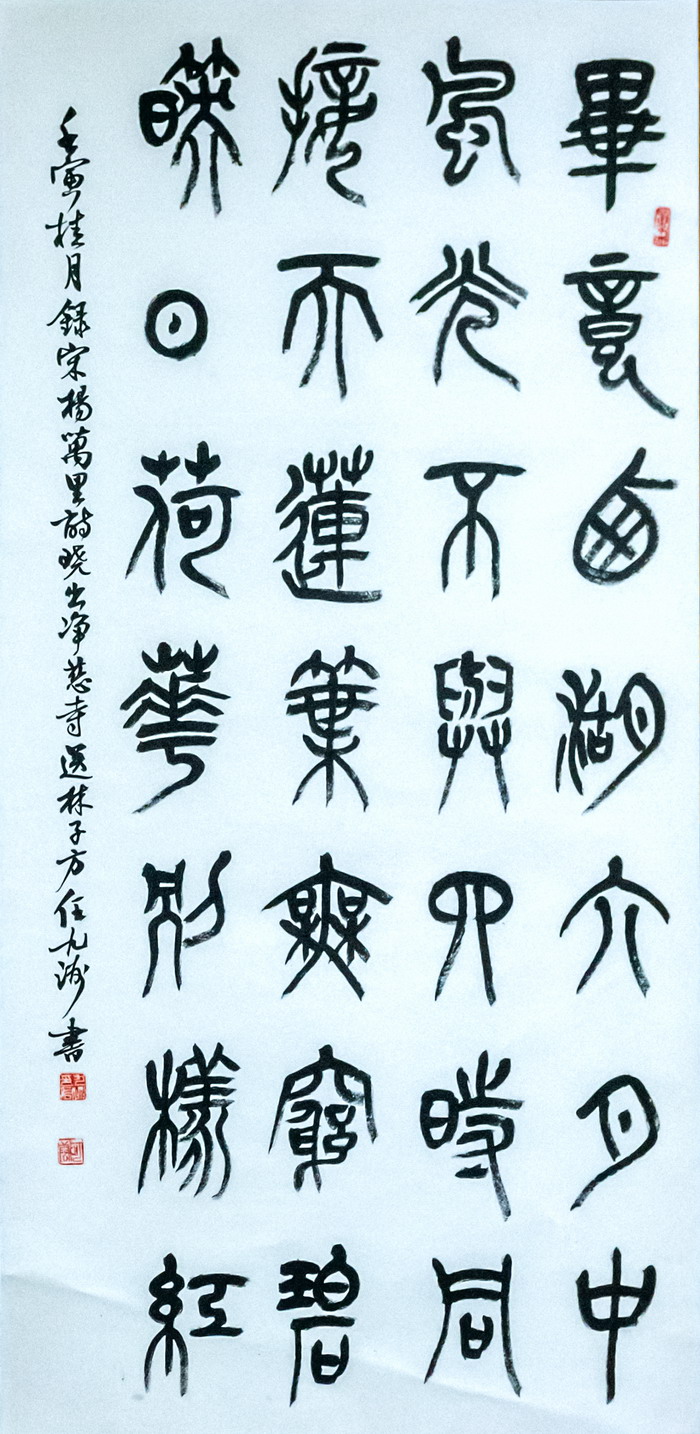 畢竟西湖六月中
風光不與四時同
接天蓮葉無窮碧
映日荷華別樣紅
壬寅桂月錄宋楊萬里詩曉出净慈寺送林子方任九海書